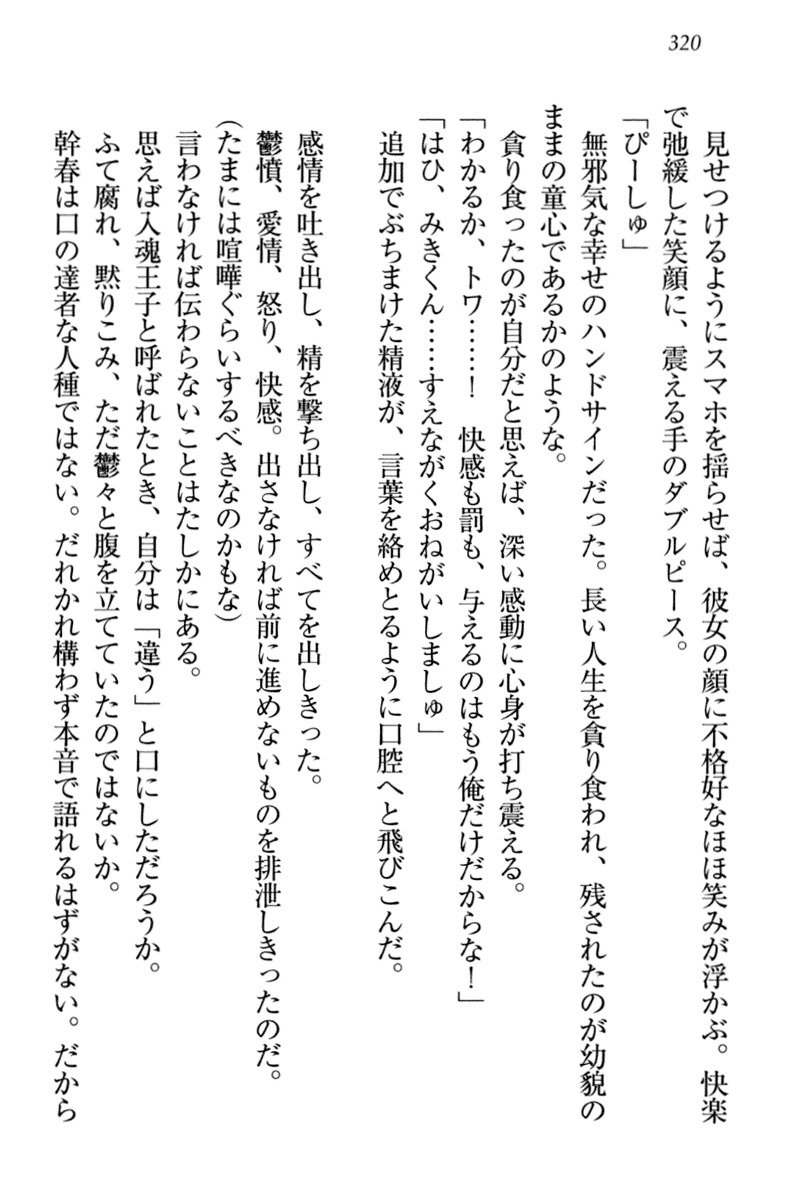 320
見せつけるようにスマホを揺らせば、彼女の顔に不格好なほほ笑みが浮かぶ。快楽
で弛緩した笑顔に、震える手のダブルピース。
「ぴーしゅ」
無邪気な幸せのハンドサインだった。長い人生を貪り食われ、残されたのが幼貌の
ままの童心であるかのような。
貪り食ったのが自分だと思えば、深い感動に心身が打ち震える。
「わかるか、トワ……！　快感も罰も、与えるのはもう俺だけだからな！」
「はひ、みきくん……すえながくおねがいしましゅ」
追加でぶちまけた精液が、言葉を絡めとるように口腔へと飛びこんだ。
感情を吐き出し、精を撃ち出し、すべてを出しきった。
鬱憤、愛情、怒り、快感。出さなければ前に進めないものを排泄しきったのだ。
（たまには喧嘩ぐらいするべきなのかもな）
言わなければ伝わらないことはたしかにある。
思えば入魂王子と呼ばれたとき、自分は「違う」と口にしただろうか。
ふて腐れ、黙りこみ、ただ鬱々と腹を立てていたのではないか。
幹春は口の達者な人種ではない。だれかれ構わず本音で語れるはずがない。だから